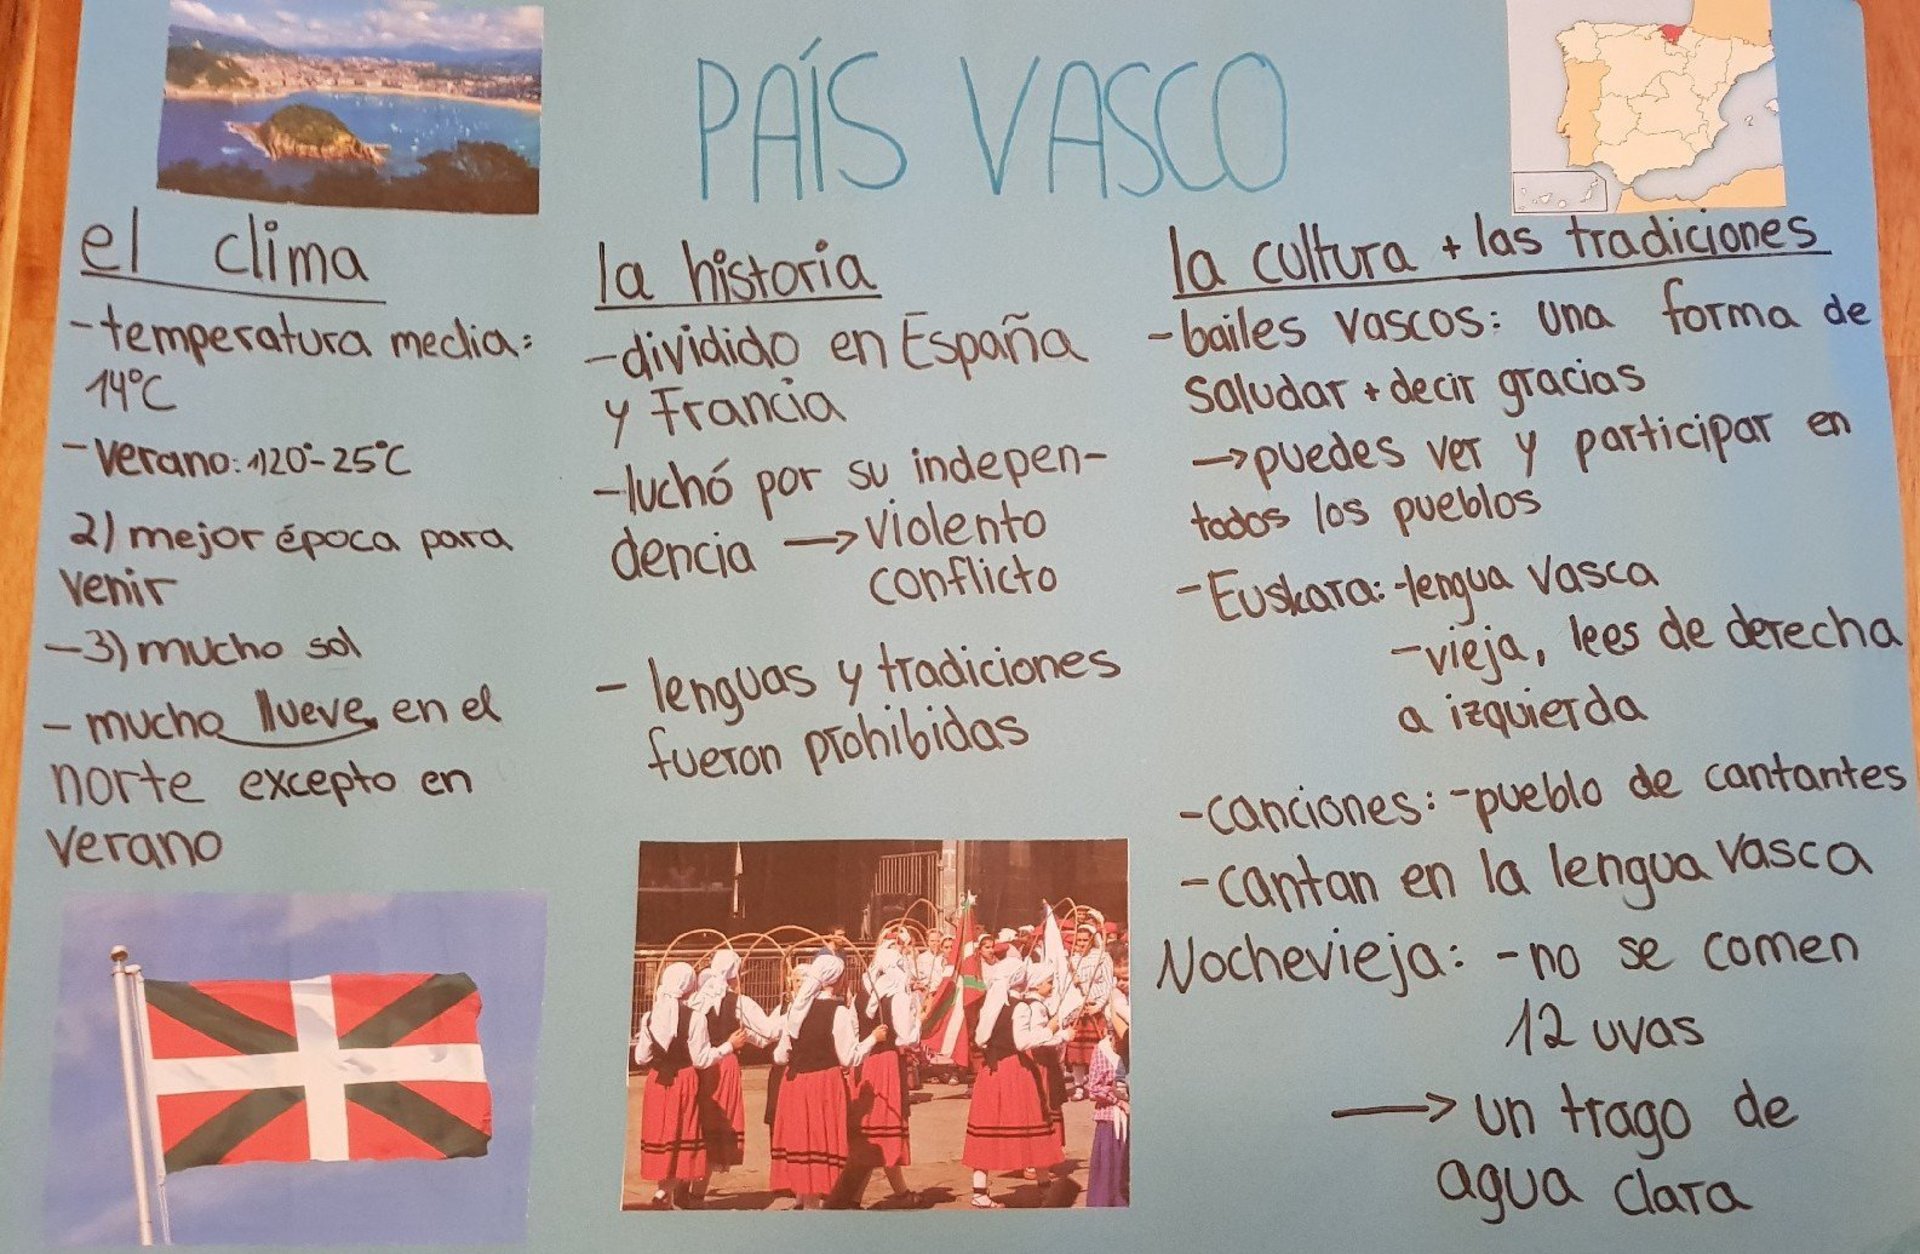 PAÍS VASCO
el clima
-temperatura media:
14°C
-verano: 1)20°-25°C
2) mejor época para
venir
-3) mucho sol
- mucho llueve en el
norte excepto en
verano
la historia
-dividido en España
y Francia
-luchó por su indepen-
dencia → violento
conflicto
- lenguas y tradiciones
fueron prohibidas
la cultura + las tradiciones
-bailes vascos: una forma de
saludar + decir gracias
→puedes ver y participar en
todos los pueblos
-Euskara: -lengua vasca
-vieja, lees de derecha
a izquierda
-canciones: -pueblo de cantantes
-cantan en la lengua vasca
Nochevieja: -no se comen
12 uvas
→ un trago de
agua clara